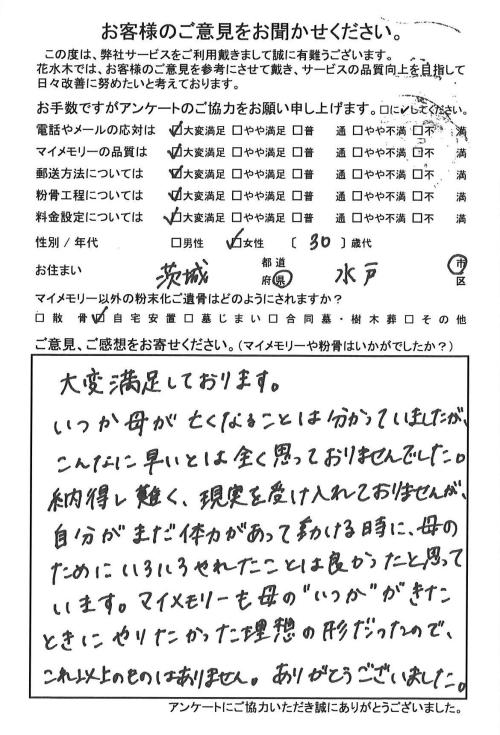 お客様のご意見をお聞かせください。
この度は、弊社サービスをご利用戴きまして誠に有難うございます。
花水木では、お客様のご意見を参考にさせて戴き、サービスの品質向上を目指して
日々改善に努めたいと考えております。
お手数ですがアンケートのご協力をお願い申し上げます。□に✓してください。
電話やメールの応対は ☑大変満足 □やや満足 □普 通 □やや不満 □不 満
マイメモリーの品質は ☑大変満足 □やや満足 □普 通 □やや不満 □不 満
郵送方法については ☑大変満足 □やや満足 □普 通 □やや不満 □不 満
粉骨工程については ☑大変満足 □やや満足 □普 通 □やや不満 □不 満
料金設定については ☑大変満足 □やや満足 □普 通 □やや不満 □不 満
性別 / 年代 □男性 ☑女性 〔 30 〕歳代
お住まい 茨城 都道府県 水戸 市区
マイメモリー以外の粉末化ご遺骨はどのようにされますか？
□散 骨 ☑自宅安置 □墓じまい □合同墓・樹木葬 □その他
ご意見、ご感想をお寄せください。(マイメモリーや粉骨はいかがでしたか？)
大変満足しております。
いつか母が亡くなることは分かっていましたが、
こんなに早いとは全く思っておりませんでした。
納得し難く、現実を受け入れておりませんが、
自分がまだ体力があって動ける時に、母の
ためにいろいろやれたことは良かったと思って
います。マイメモリーも母の"いつか"がきた
ときにやりたかった理想の形だったので、
これ以上のものはありません。ありがとうございました。
アンケートにご協力いただき誠にありがとうございました。